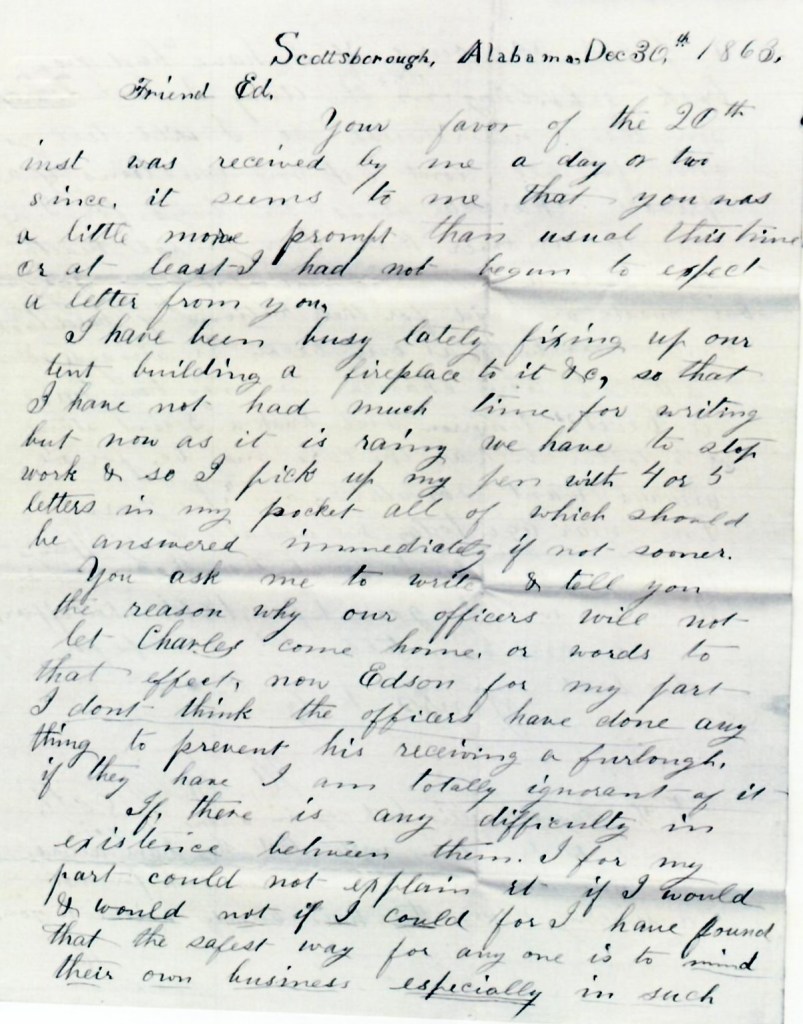 Scottsborough, Alabama, Dec 30,th 1863.
Friend Ed,
Your favor of the 20th
inst was received by me a day or two
since, it seems to me that you was
a little more prompt than usual this time
or at least I had not begun to expect
a letter from you,
I have been busy lately fixing up our
tent building a fireplace to it &c, so that
I have not had much time for writing
but now as it is rainy we have to stop
work & so I pick up my pen with 4 or 5
letters in my pocket all of which should
be answered immediately if not sooner.
You ask me to write & tell you
the reason why our officers will not
let Charles come home, or words to
that effect, now Edson for my part
I dont think the officers have done any
thing to prevent his receiving a furlough,
if they have I am totally ignorant of it
If, there is any difficulty in
existence between them. I for my
part could not explain it if I would
& would not if I could for I have found
that the safest way for any one is to mind
their own business especially in such